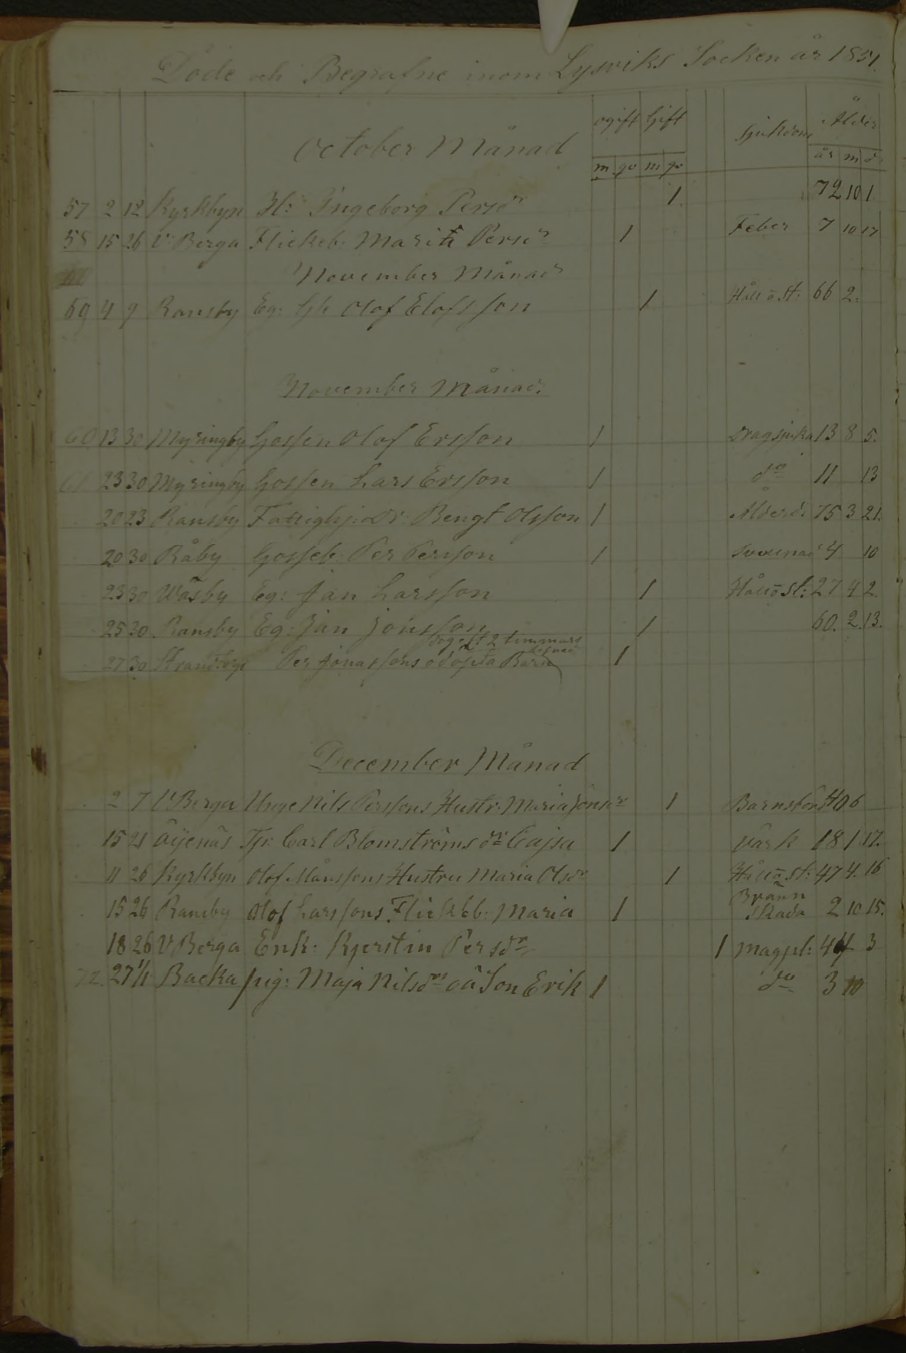 Döde och Begrafne inom Lysviks Socken år 1851.
October Månad
ogift Gift Sjukdom Ålder
m. qv m qv år m d.
57 2 12 Kyrkbyn H: Ingeborg Persdr 1 72 10 1
58 15 26 V Berga Flickeb. Marit Persdr 1 Feber 7 10 17
November Månad
59 4 9 Ransby Eg: Gif Olof Elofsson 1 Håll o st: 66 2.
November Månad.
60 13 30 Myringby Gossen Olof Ersson 1 Dragsjuka 13 8 5.
61 23 30 Myringby Gossen Lars Ersson 1 do 11 13
20 23 Ransby Fattighj: Dr: Bengt Olsson 1 Ålderd. 75 3 21.
20 30 Råby Gosseb. Per Persson 1 4 10
23 30 Wåsby Eg: Jan Larsson 1 Håll o st: 27 4 2
25 30 Ransby Eg: Jan Jonsson 1 60. 2 13.
27 30 Per Jonassons odöpta Barn 2 timmars 1
December Månad
2 7 V Berga Unge Nils Perssons Hustr: Maria Jonsdr 1 Barnsbörd 40 6
15 21 Carl Blomströms dr Cajsa 1 Värk 18 1 17.
11 26 Kyrkbyn Olof Månssons Hustru Maria Olsdr 1 Håll o st: 47 4. 16
15 26 Ransby Olof Larssons Flickb: Maria 1 Bränn
skada 2 10 15.
18 26 V Berga Enk: Kjerstin Persdr 1 magpl: 44 3
72. 27 1/1 Backa pig: Maja Nilsdrs oä Son Erik 1 do 3 10